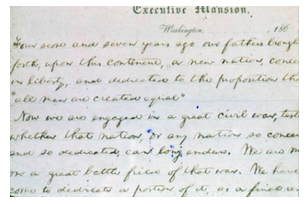 Executive Mansion,
Washington, 186
Four score and seven years ago our fathers brough
forth, upon this continent, a new nation, conce
in liberty, and dedicated to the proposition tha
"all men are created equal"
Now we are engaged in a great civil war, testi
whether that nation, or any nation so concei
and so dedicated, can long endure. We are m
on a great battle field of that war. We have
come to dedicate a portion of it, as a final res